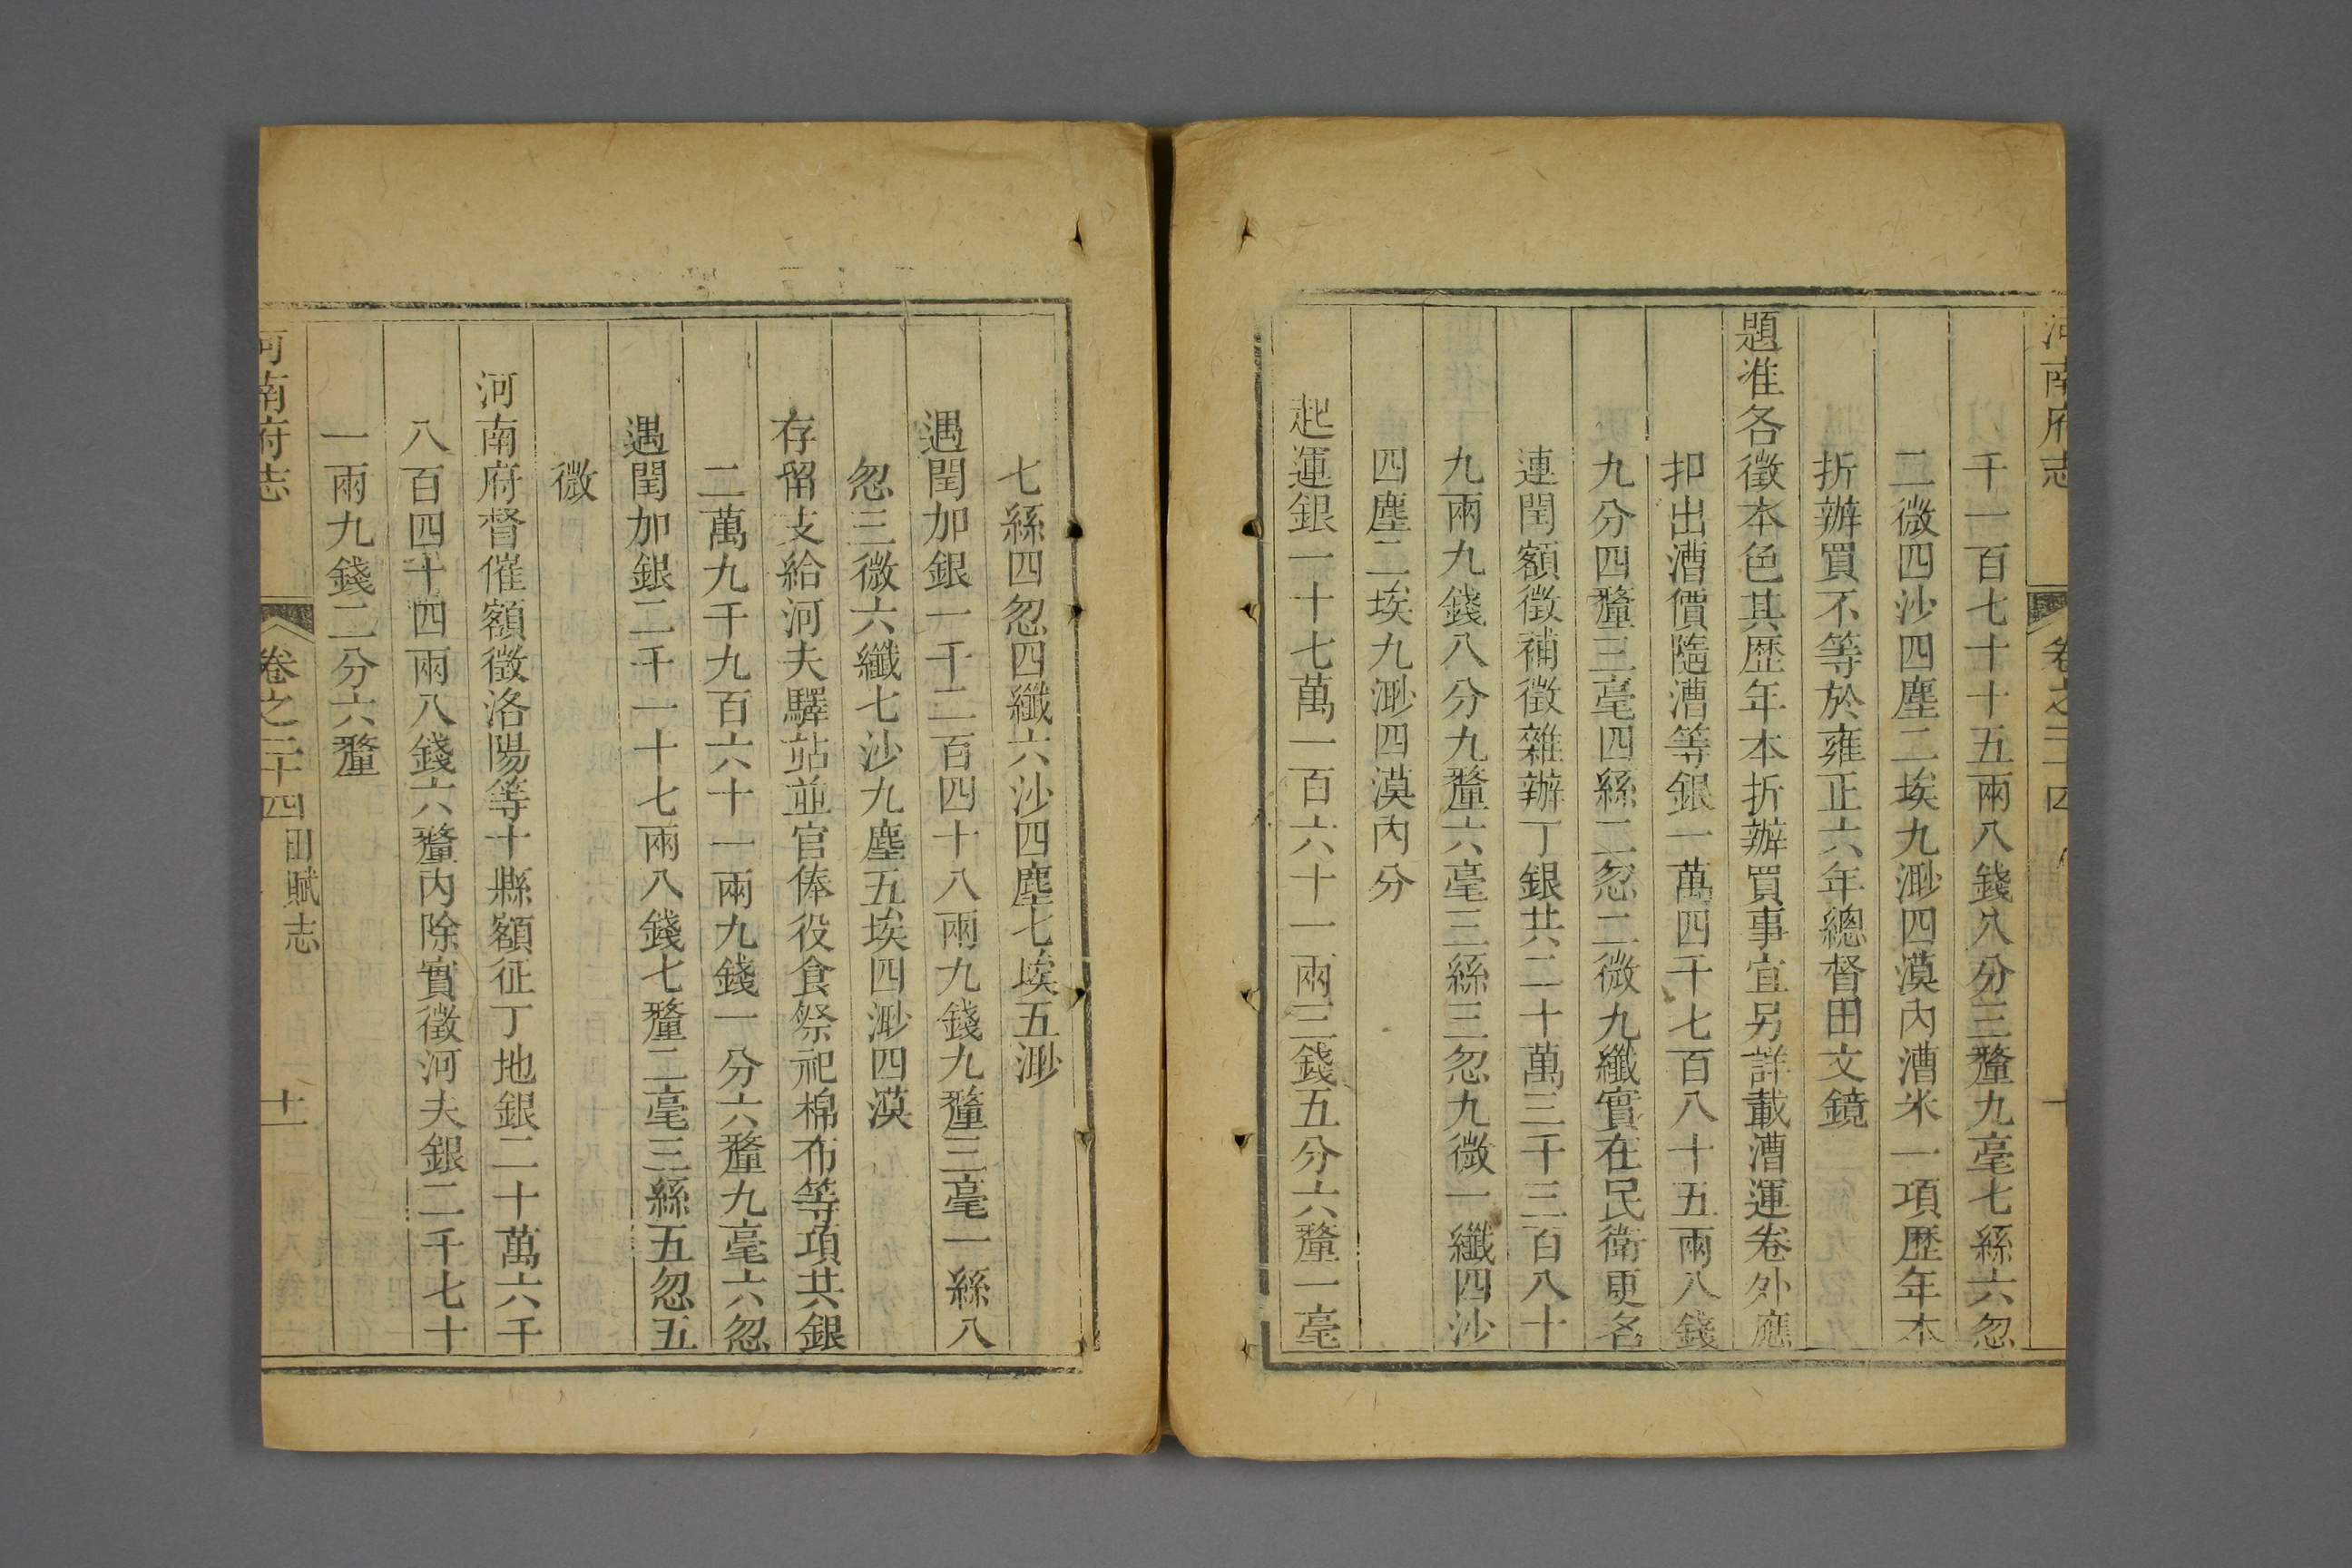 河南府志 卷之二十四 十
千一百七十十五兩八錢八分三釐九毫七絲六忽
二微四沙四塵二埃九渺四漠內漕米一項歷年本
折辦買不等於雍正六年總督田文鏡
題准各徵本色其歷年本折辦買事宜另詳載漕運卷外應
扣出漕價隨漕等銀一萬四千七百八十五兩八錢
九分四釐三毫四絲二忽二微九纖實在民衛更名
連閏額徵補徵雜辦丁銀共二十萬三千三百八十
九兩九錢八分九釐六毫三絲三忽九微一纖四沙
四塵二埃九渺四漠內分
起運銀一十七萬一百六十一兩三錢五分六釐一毫
七絲四忽四纖六沙四塵七埃五渺
遇閏加銀一千二百四十八兩九錢九釐三毫一絲八
忽三微六纖七沙九塵五埃四渺四漠
存留支給河夫驛站並官俸役食祭祀棉布等項共銀
二萬九千九百六十一兩九錢一分六釐九毫六忽
遇閏加銀二千一十七兩八錢七釐二毫三絲五忽五
微
河南府督催額徵洛陽等十縣額征丁地銀二十萬六千
八百四十四兩八錢六釐內除實徵河夫銀二千七十
一兩九錢二分六釐
河南府志 卷之二十四 田賦志 十一